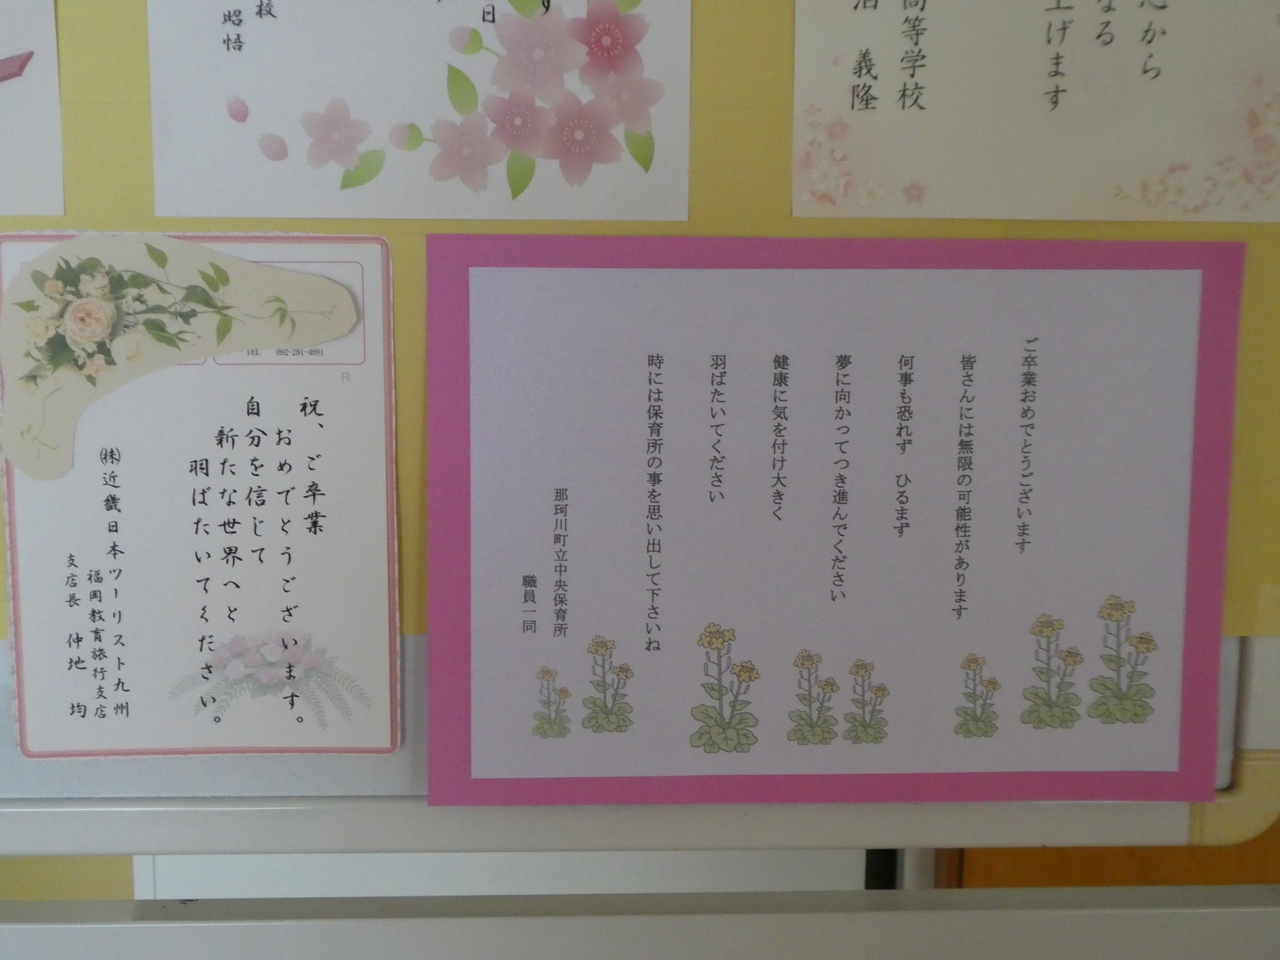 校
昭悟
日
す
心から
なる
上げます
高等学校
沼 義隆
TEL 092-281-4891
R
祝、ご卒業
おめでとうございます。
自分を信じて
新たな世界へと
羽ばたいてください。
㈱近畿日本ツーリスト九州
福岡教育旅行支店
支店長 仲地 均
ご卒業おめでとうございます
皆さんには無限の可能性があります
何事も恐れず ひるまず
夢に向かってつき進んでください
健康に気を付け大きく
羽ばたいてください
時には保育所の事を思い出して下さいね
那珂川町立中央保育所
職員一同